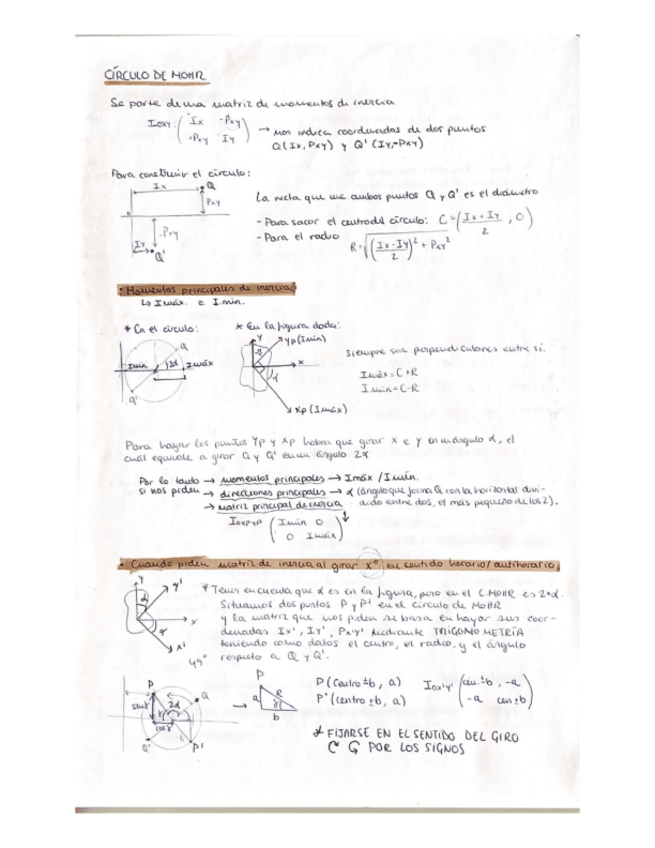 CÍRCULO DE MOHR
Se parte de una matriz de momentos de inercia
Ioxy: ( Ix -Pxy
-Pxy Iy ) → nos indica coordenadas de dos puntos
Q(Ix, Pxy) y Q' (Iy,-Pxy)
Para construir el círculo:
Ix Q
Pxy
La recta que une ambos puntos Q y Q' es el diámetro
-Pxy
- Para sacar el centro del círculo: C = ( Ix + Iy / 2 , 0 )
- Para el radio R = √( ( Ix - Iy / 2 )² + Pxy² )
Iy Q'
• Momentos principales de inercia
↳ Imáx. e Imin.
* En el círculo: * En la figura dada:
Q Imin 2α Imáx Q'
Y Yp (Imin) x α Xp (Imáx)
Siempre son perpendiculares entre sí.
Imáx = C + R
Imin = C - R
Para hayar los puntos Yp y Xp habra que girar x e y en un ángulo α, el
cuál equivale a girar Q y Q' en un ángulo 2α
Por lo tanto → momentos principales → Imáx / Imín.
si nos piden → direcciones principales → α (ángulo que forma Q con la horizontal divi-
→ matriz principal de inercia dido entre dos, el más pequeño de los 2).
Ioxpyp ( Imin 0
0 Imáx )
• Cuando piden matriz de inercia al girar xº en sentido horario/antihorario
Y y' α x x' 45º
* Tener en cuenta que α es en la figura, pero en el C.MOHR es 2*α.
Situamos dos puntos P y P' en el círculo de MOHR
y la matriz que nos piden se basa en hayar sus coor-
denadas Ix', Iy', Px'y' mediante TRIGONOMETRÍA
teniendo como datos el centro, el radio, y el ángulo
respecto a Q y Q'.
P Q 2α Q' P'
→ P a R b
P (centro ±b, a)
P' (centro ±b, a)
Iox'y' ( cen.±b, -a
-a cen±b )
* FIJARSE EN EL SENTIDO DEL GIRO
POR LOS SIGNOS